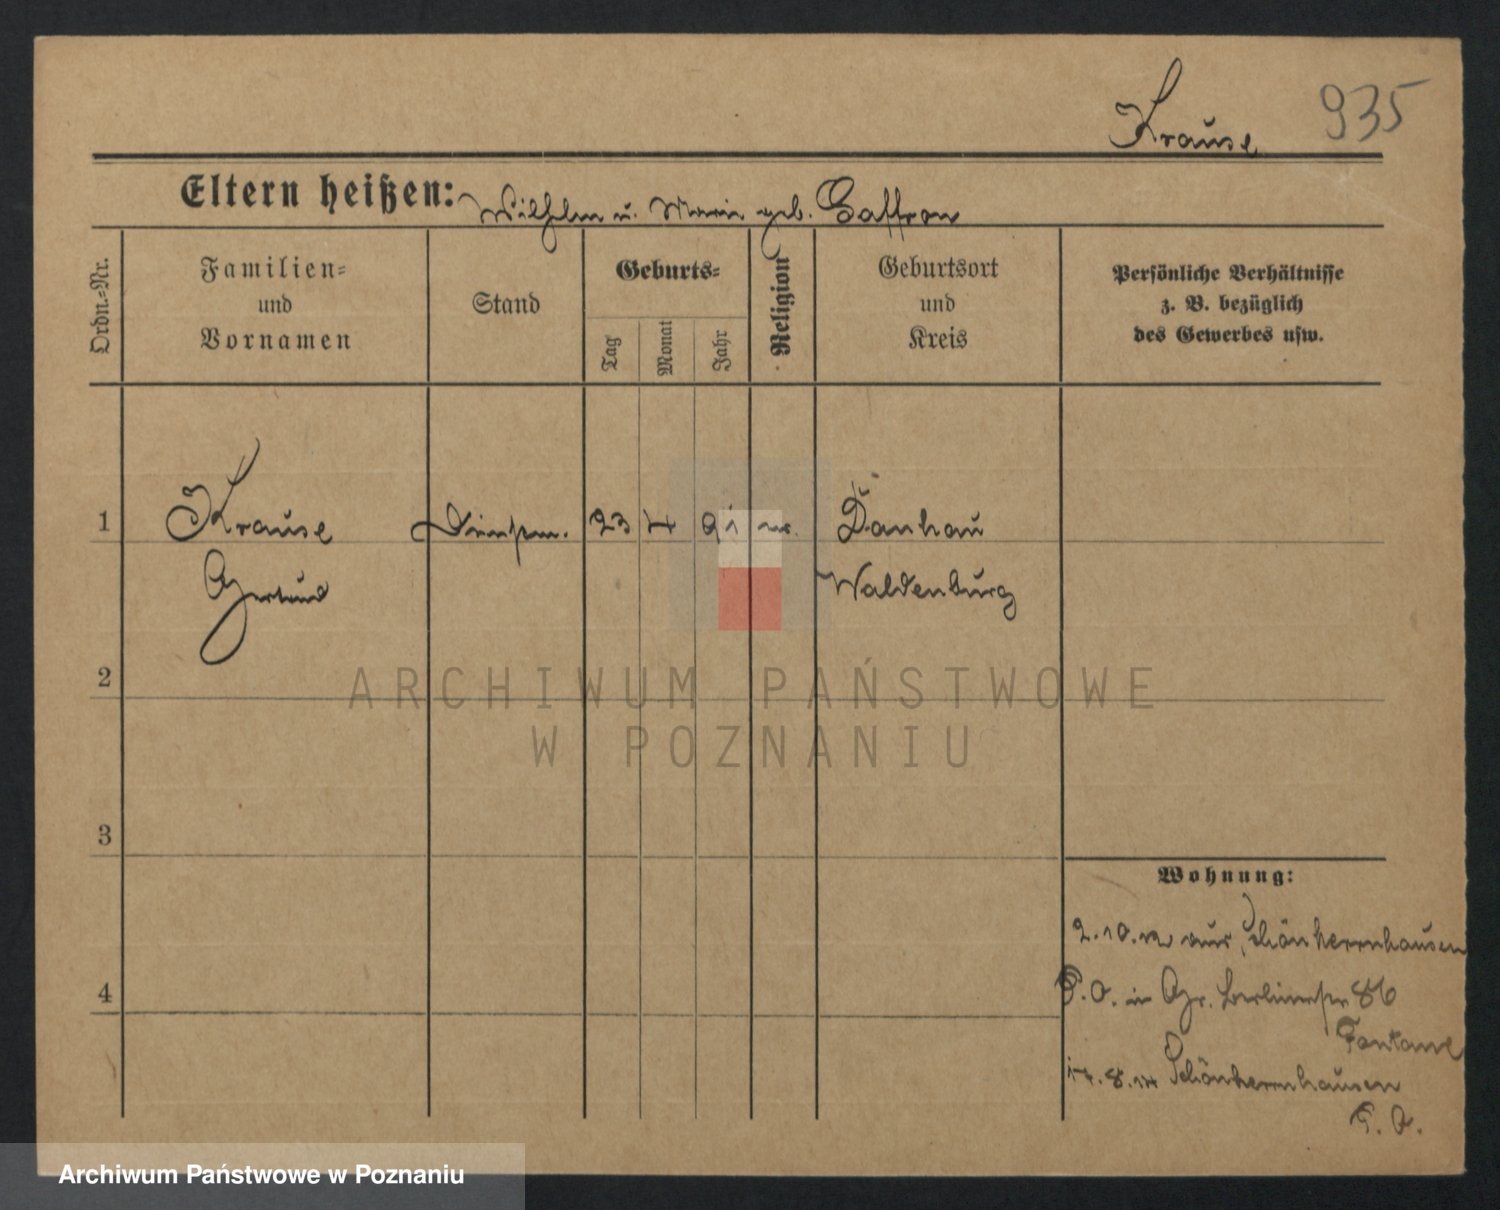 Krause 935
Eltern heißen: Wilhelm u. Marie geb. Gaffron
Ordn.-Nr.
Familien-
und
Vornamen
Stand
Geburts-
Tag
Monat
Jahr
Religion
Geburtsort
und
Kreis
Persönliche Verhältnisse
z. B. bezüglich
des Gewerbes usw.
1 Krause 23 4 91
Gertrud
Danhau
Waldenburg
2
3
4
Wohnung:
2.10.12 aus Schönherrnhausen
P. O. in Gr. Berlinerstr 86
Fontane
14.8.14 Schönherrnhausen
P. O.
ARCHIWUM PAŃSTWOWE
W POZNANIU
Archiwum Państwowe w Poznaniu